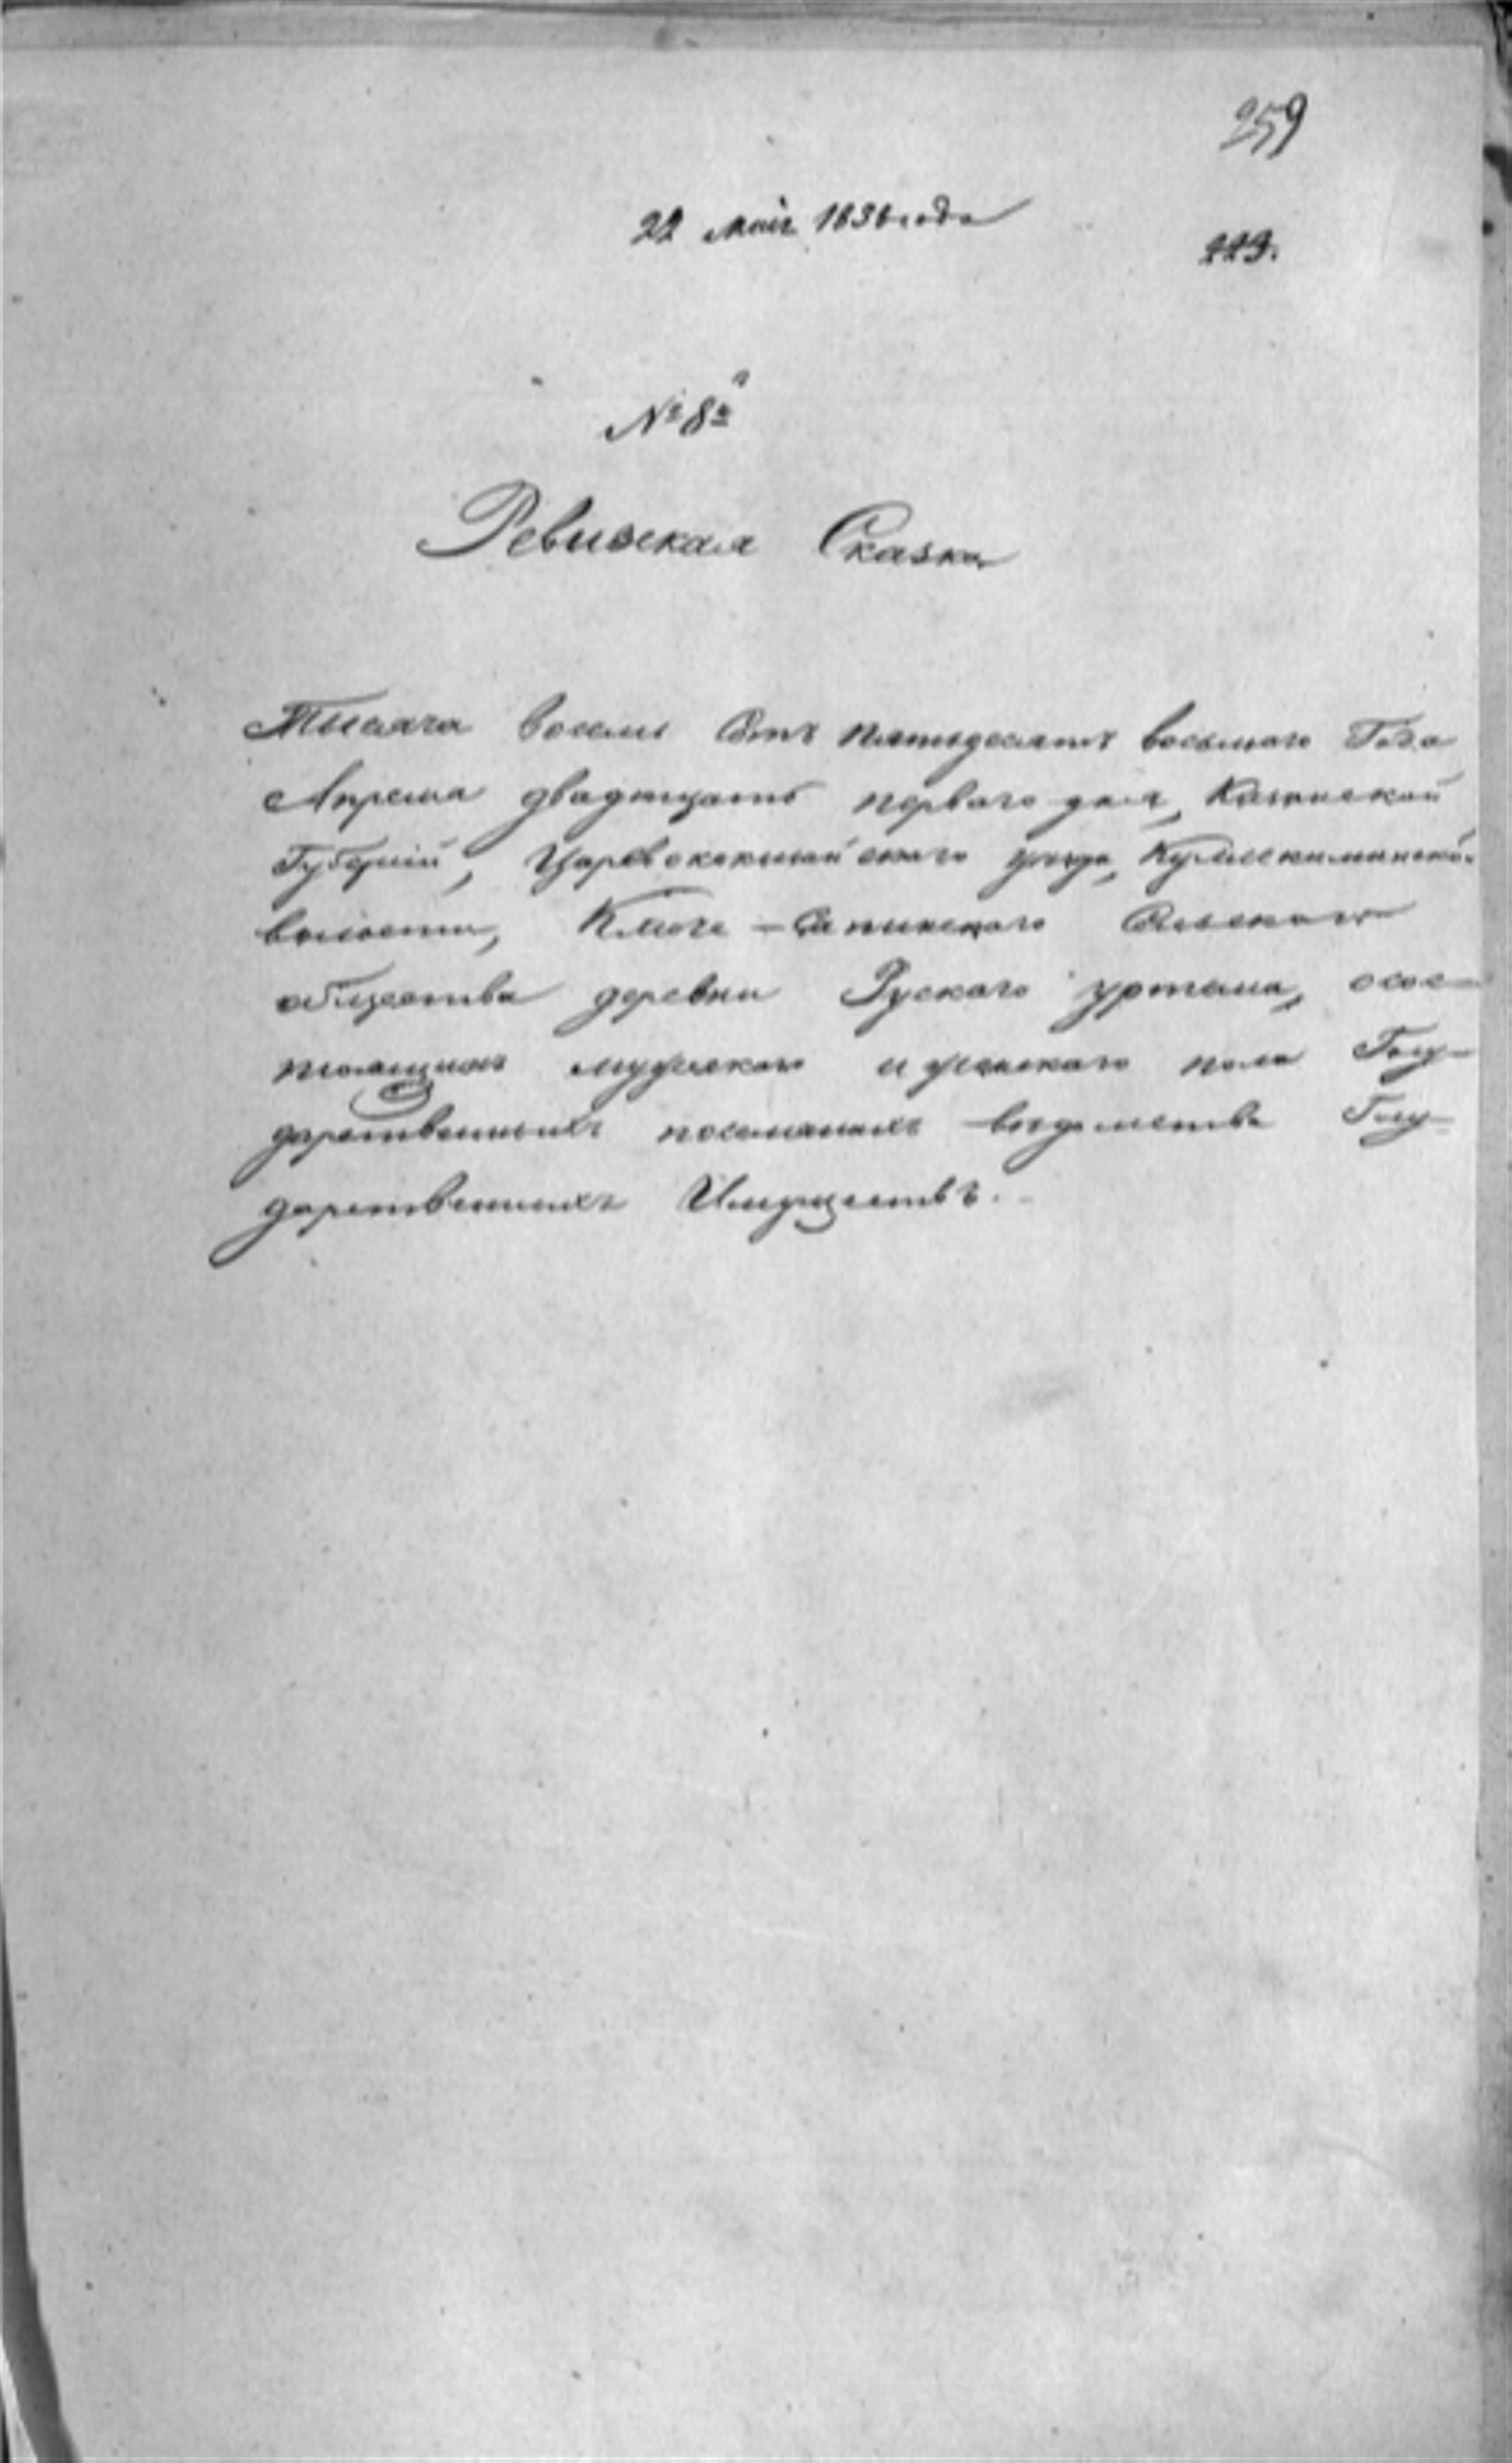 259
22 Маія 1858 года
223.
№ 8й
Ревизская Сказка
Тысяча восемь Сотъ пятьдесятъ восьмого Года
Апреля двадцать первого дня, Казанской
Губерніи, Царевококшайского уезда, Кулле киминской
волости, Ключе-Сапинского Сельского
общества деревни Руского уртема, осос-
тоящихъ мужеского и женского пола Госу-
дарственныхъ поселянахъ ведомства Госу-
дарственныхъ Имуществъ.